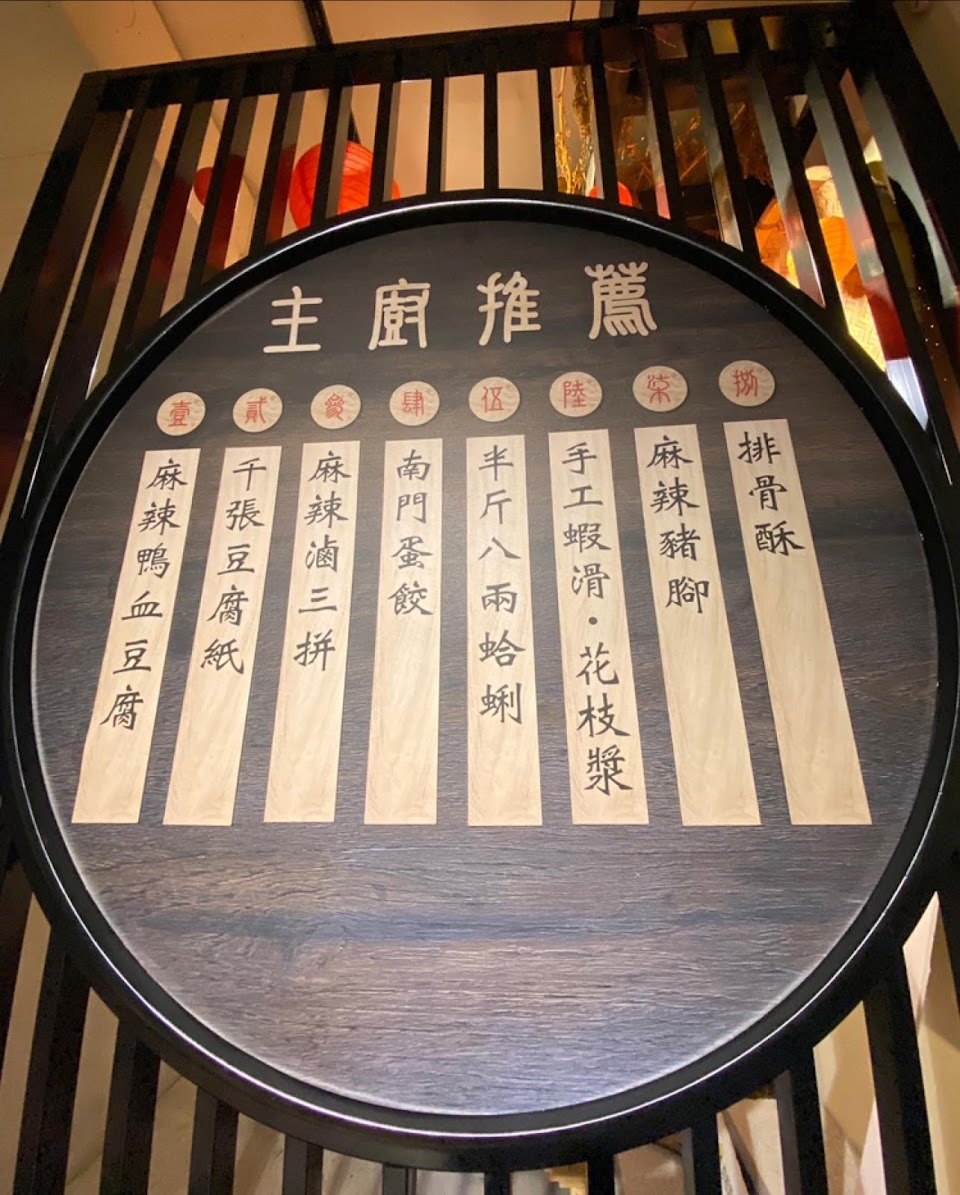 主廚推薦
壹
麻辣鴨血豆腐
貳
千張豆腐紙
參
麻辣滷三拼
肆
南門蛋餃
伍
半斤八兩蛤蜊
陸
手工蝦滑・花枝漿
柒
麻辣豬腳
捌
排骨酥